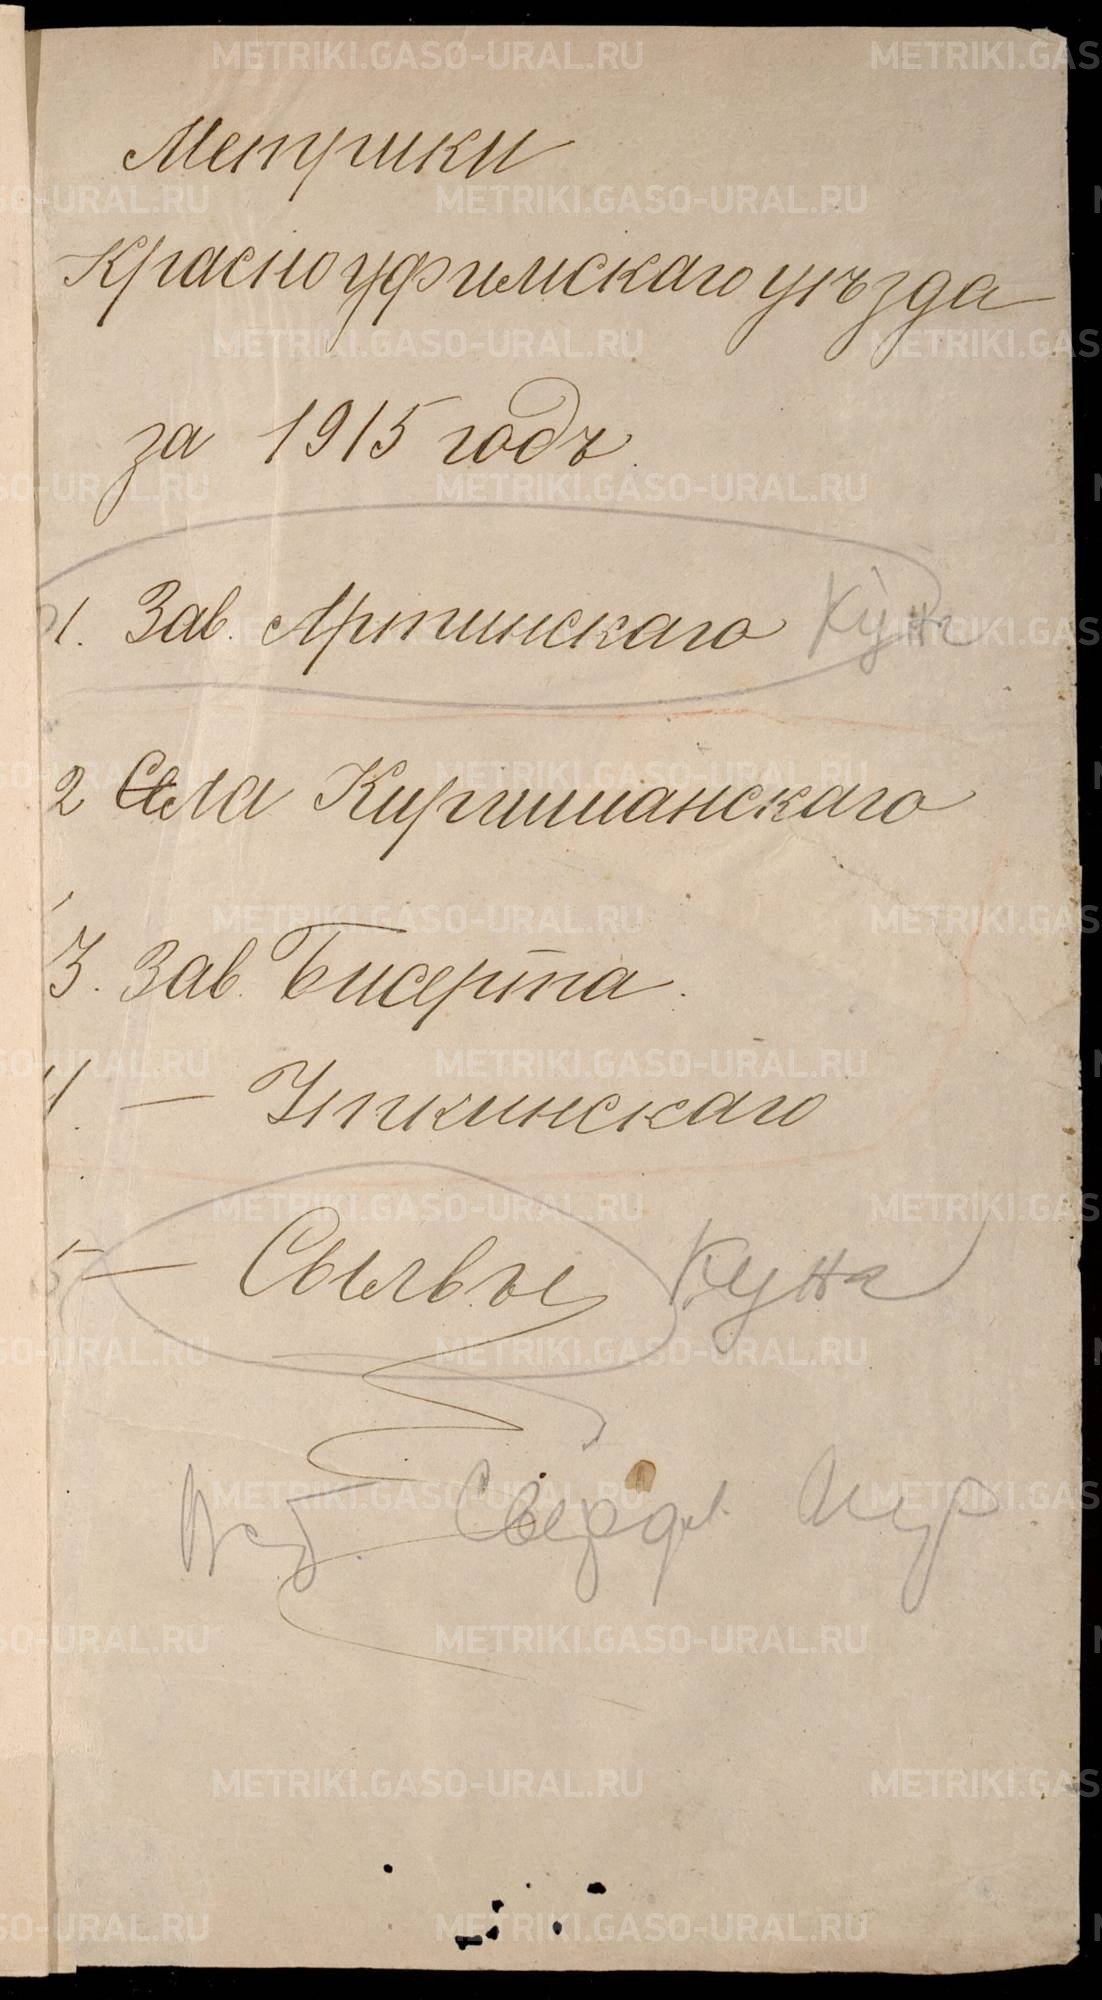 Метрики
Красноуфимскаго уѣзда
за 1915 годъ.
1. Зав. Артинскаго Кунг
2 Села Киргишанскаго
3. Зав. Бисертa.
4. — Уткинскаго
5 — Сылвы Кунг
Свердл.
METRIKI.GASO-URAL.RU